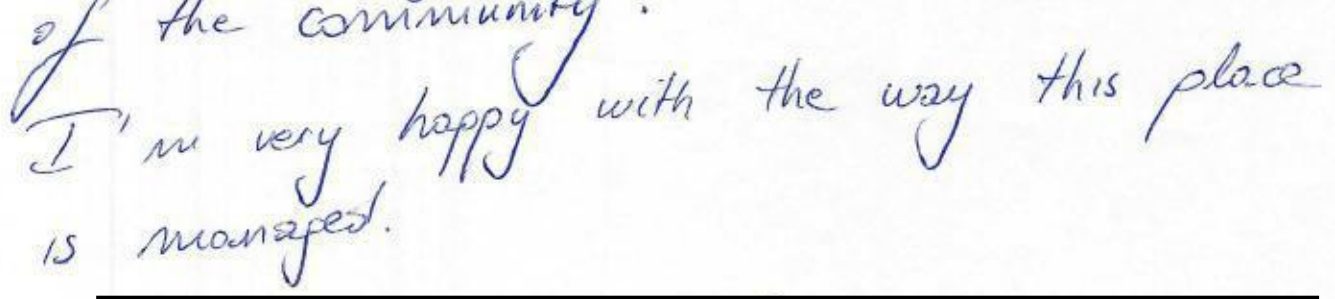 of the community.
I'm very happy with the way this place
is managed.